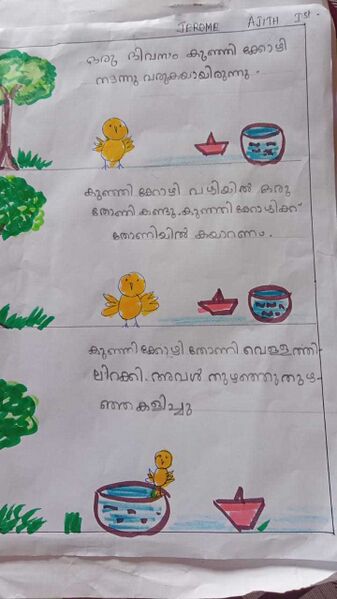 JEROME AJITH Ist.
ഒരു ദിവസം കുഞ്ഞി കോഴി
നടന്നു വരുകയായിരുന്നു.
കുഞ്ഞി കോഴി വഴിയിൽ ഒരു
തോണി കണ്ടു. കുഞ്ഞി കോഴിക്ക്
തോണിയിൽ കയറണം.
കുഞ്ഞി കോഴി തോണി വെള്ളത്തി
ലിറക്കി. അവൾ തുഴഞ്ഞുതുഴ-
ഞ്ഞകളിച്ചു